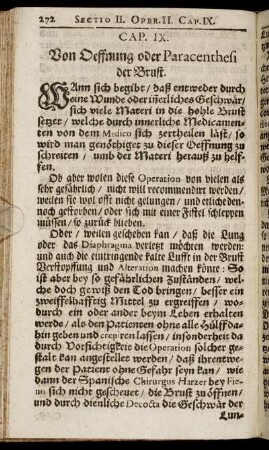 272 SECTIO II. OPER. II. CAP. IX.
CAP. IX.
Von Oeffnung oder Paracenthesi
der Brust.
WAnn sich begibt / daß entweder durch
eine Wunde oder iñerliches Geschwär /
sich viele Materi in die hohle Brust
setzet / welche durch innerliche Medicamen-
ten von dem Medico sich zertheilen läst / so
wird man genöthiget zu dieser Oeffnung zu
schreiten / umb der Materi herauß zu helf-
fen.
Ob aber wolen diese Operation von vielen als
sehr gefährlich / nicht will recommendirt werden /
weilen sie wol offt nicht gelungen / und etliche den-
noch gestorben / oder sich mit einer Fistel schleppen
müssen / so zurück blieben.
Oder / weilen geschehen kan / daß die Lung
oder das Diaphragma verletzt möchten werden:
und auch die eintringende kalte Lufft in der Brust
Verstopffung und Alteration machen könte: So
ist aber bey so gefährlichen Zuständen / wel-
che doch gewiß den Tod bringen / besser ein
zweiffelhafftig Mittel zu ergreiffen / wo-
durch ein oder ander beym Leben erhalten
werde / als den Patienten ohne alle Hülff da-
hin geben und crepiren lassen / insonderheit da
durch Vorsichtigkeit die Operation solcher ge-
stalt kan angestellet werden / daß ihrentwe-
gen der Patient ohne Gefahr seyn kan / wie
dann der Spanische Chirurgus Harzer bey Fie-
no sich nicht gescheuet / die Brust zu öffnen /
und durch dienliche Decocta die Geschwär der
Lun-